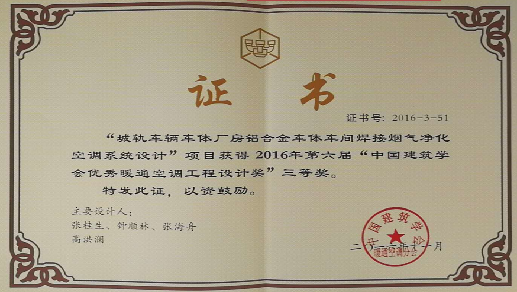 证 书
证书号：2016-3-51
“城轨车辆车体厂房铝合金车体车间焊接烟气净化
空调系统设计”项目获得2016年第六届“中国建筑学
会优秀暖通空调工程设计奖”三等奖。
特发此证，以资鼓励。
主要设计人：
张桂生、钟顺林、张海舟
高洪澜
中国建筑学会
暖通空调分会